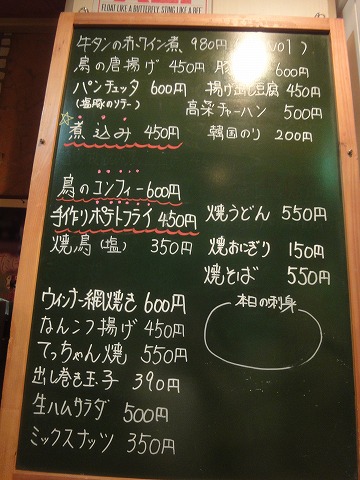 FLOAT LIKE A BUTTERFLY STING LIKE A BEE
牛タンの赤ワイン煮 980円 (No1)
鳥の唐揚げ 450円 豚 600円
パンチェッタ 600円 揚げ出し豆腐 450円
(塩豚のソテー) 高菜チャーハン 500円
☆煮込み 450円 韓国のり 200円
鳥のコンフィー 600円
手作りポテトフライ 450円 焼うどん 550円
焼鳥(塩) 350円 焼おにぎり 150円
焼そば 550円
ウィンナー網焼き 600円 本日の刺身
なんこつ揚げ 450円
てっちゃん焼 550円
出し巻き玉子 390円
生ハムサラダ 500円
ミックスナッツ 350円